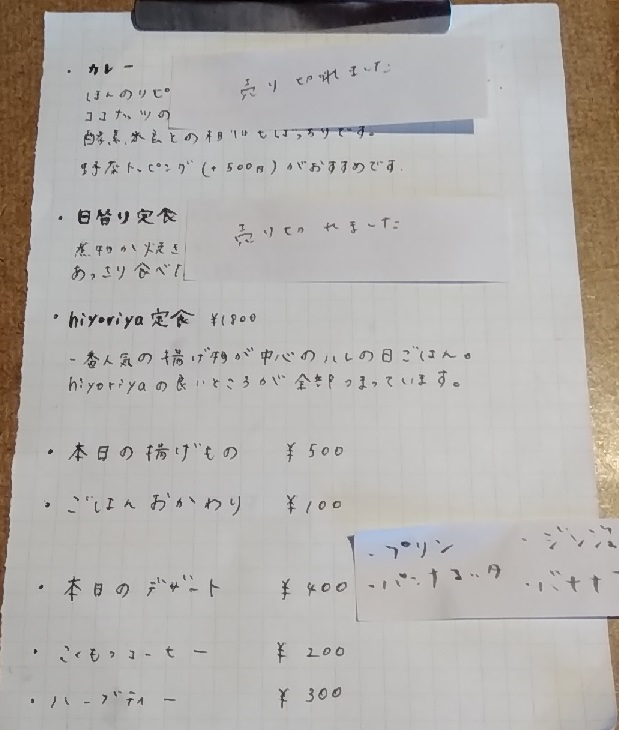 ・カレー
売り切れました
ほんのりピ
ココナッツの
酵素玄米との相性もばっちりです。
野菜トッピング(+500円)がおすすめです。
・日替り定食
売り切れました
煮物か焼き
あっさり食べ
・hiyoriya定食 ¥1800
一番人気の揚げ物が中心のハレの日ごはん。
hiyoriyaの良いところが全部つまっています。
・本日の揚げもの ¥500
・ごはんおかわり ¥100
・プリン ・ジンジ
・パンナコッタ ・バナナ
・本日のデザート ¥400
・こくもつコーヒー ¥200
・ハーブティー ¥300